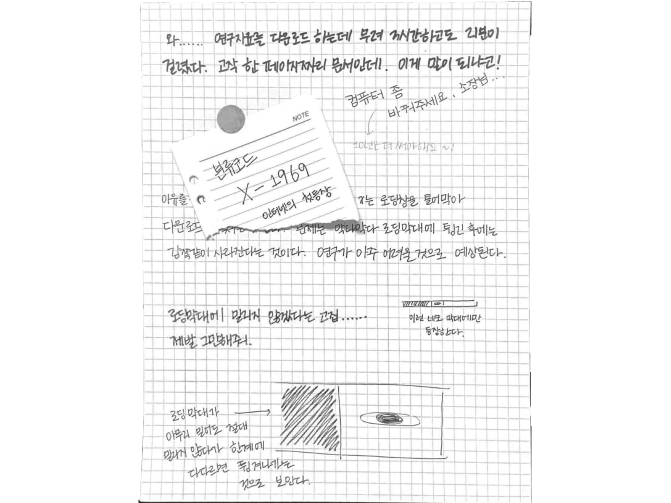 와...... 연구자료를 다운로드 하는데 무려 저시간하고도 리분이
걸렸다. 고작 한 페이지짜리 문서인데. 이게 말이 되냐고!
컴퓨터 좀
바꿔주세요, 소장님...
10년은 더 써야해요~!
NOTE
분류코드
X-1969
인터넷의 첫등장
이유를
는 로딩창을 틀어막아
다운로드
문제는 막대마다 로딩막대에 튕긴 후에는
감쪽같이 사라진다는 것이다. 연구가 아주 어려울 것으로 예상된다.
로딩막대에 밀리지 않겠다는 고집......
제발 그만해줘.
이런 네모 막대에만
등장한다.
로딩막대가
아무리 밀어도 절대
밀리지 않다가 한계에
다다르면 튕겨나가는
것으로 보인다.